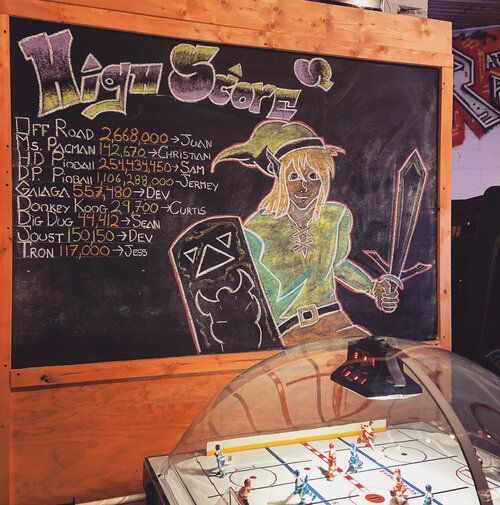 High Scores
Off Road 2,668,000→Juan
Ms. Pacman 142,670→Christian
HD Pinball 254,434,450→Sam
D.P. Pinball 1,106,288,000→Jermey
Galaga 557,480→Dev
Donkey Kong 29,700→Curtis
Dig Dug 44,412→Sean
Joust 150,150→Dev
Tron 117,000→Jess